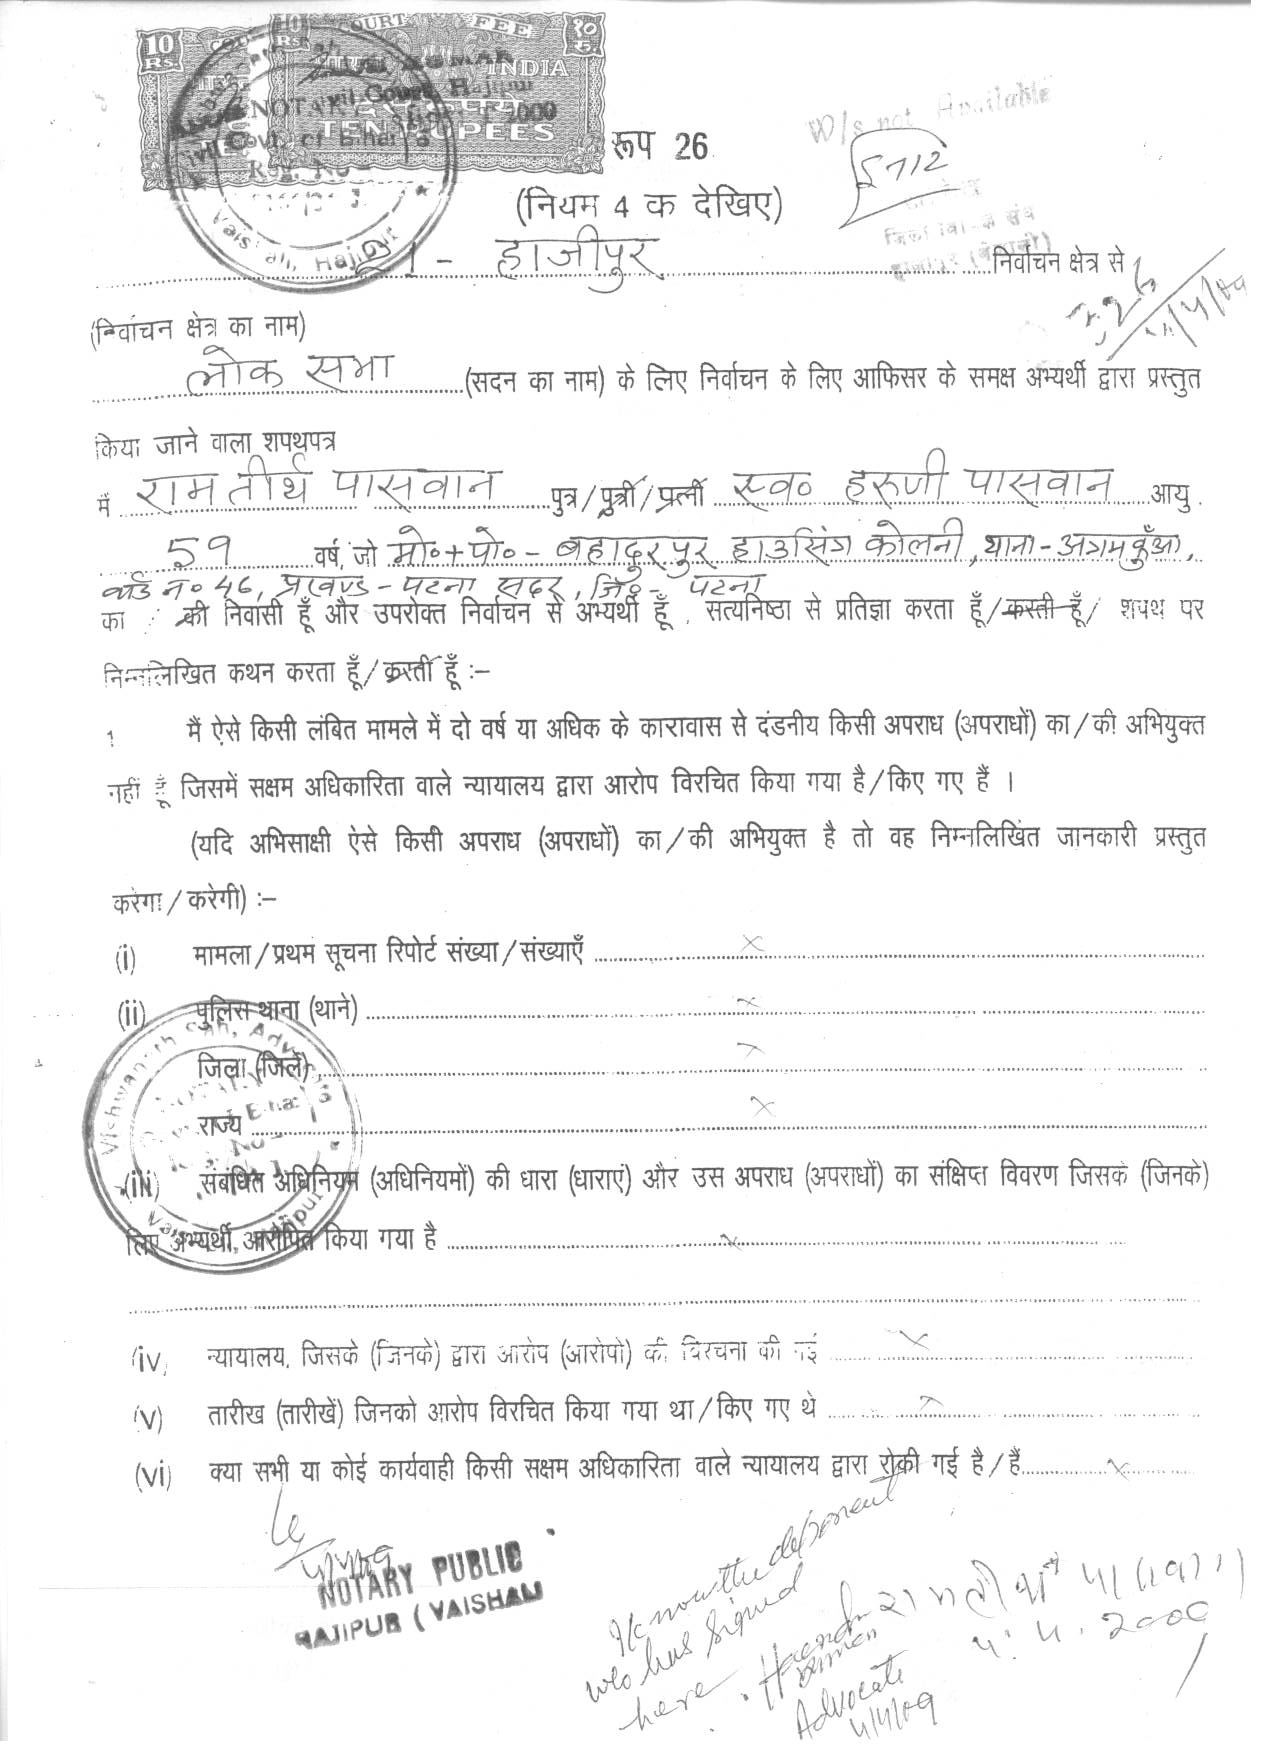 10 Rs.
COURT FEE
INDIA
TEN RUPEES
W/s not Available
रूप 26
(नियम 4 क देखिए)
21 - हाजीपुर निर्वाचन क्षेत्र से
(निर्वाचन क्षेत्र का नाम)
लोक सभा (सदन का नाम) के लिए निर्वाचन के लिए आफिसर के समक्ष अभ्यर्थी द्वारा प्रस्तुत
किया जाने वाला शपथपत्र
मैं राम तीर्थ पासवान पुत्र/पुत्री/पत्नी स्व० हरुजी पासवान आयु
59 वर्ष, जो मो०+पो०- बहादुरपुर हाउसिंग कोलनी, थाना-अगमकुँआ,
वार्ड न० 46, प्रखण्ड-पटना सदर, जि०- पटना
का की निवासी हूँ और उपरोक्त निर्वाचन से अभ्यर्थी हूँ, सत्यनिष्ठा से प्रतिज्ञा करता हूँ/करती हूँ/ शपथ पर
निम्नलिखित कथन करता हूँ/करती हूँ :–
1 मैं ऐसे किसी लंबित मामले में दो वर्ष या अधिक के कारावास से दंडनीय किसी अपराध (अपराधों) का/की अभियुक्त
नहीं हूँ जिसमें सक्षम अधिकारिता वाले न्यायालय द्वारा आरोप विरचित किया गया है/किए गए हैं ।
(यदि अभिसाक्षी ऐसे किसी अपराध (अपराधों) का/की अभियुक्त है तो वह निम्नलिखित जानकारी प्रस्तुत
करेगा/करेगी) :–
(i) मामला/प्रथम सूचना रिपोर्ट संख्या/संख्याएँ x
(ii) पुलिस थाना (थाने) x
जिला (जिले) x
राज्य x
(iii) संबंधित अधिनियम (अधिनियमों) की धारा (धाराएं) और उस अपराध (अपराधों) का संक्षिप्त विवरण जिसके (जिनके)
लिए अभ्यर्थी आरोपित किया गया है x
(iv) न्यायालय, जिसके (जिनके) द्वारा आरोप (आरोपो) की विरचना की गई x
(v) तारीख (तारीखें) जिनको आरोप विरचित किया गया था/किए गए थे x
(vi) क्या सभी या कोई कार्यवाही किसी सक्षम अधिकारिता वाले न्यायालय द्वारा रोकी गई है/हैं x
NOTARY PUBLIC
HAJIPUR (VAISHALI
I know the deponent
who has signed
here.
Advocate
4/4/09
राम तीर्थ पासवान
4.4.2009